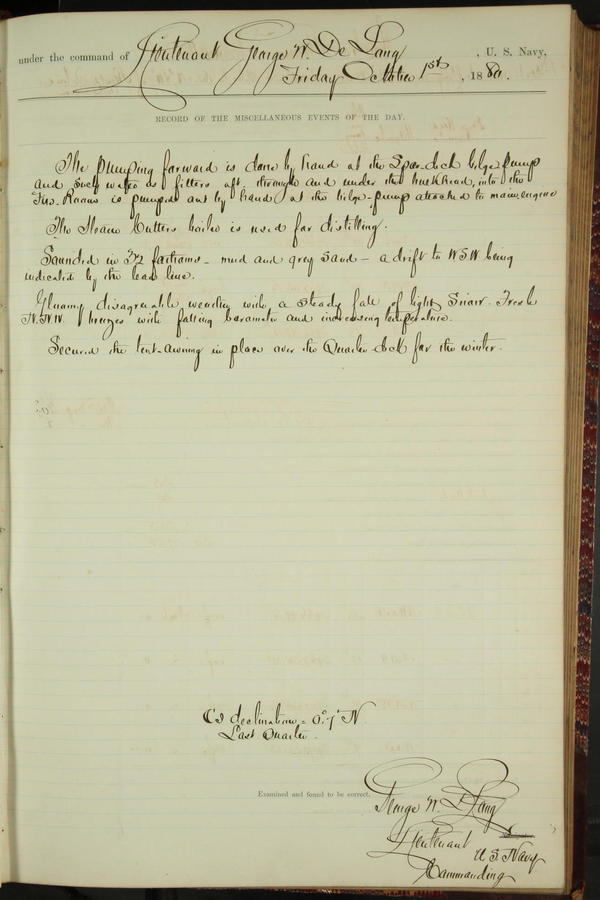 under the command of Lieutenant George W. De Long, U. S. Navy,
Friday October 1st, 1880.
RECORD OF THE MISCELLANEOUS EVENTS OF THE DAY.
The pumping forward is done by hand at the Spar-deck bilge pump
and such water as filters aft, through and under the bulkhead, into the
Fire-Room is pumped out by hand at the bilge-pump attached to main engine
The Steam Cutters boiler is used for distilling.
Sounded in 32 fathoms - mud and grey sand - a drift to WSW being
indicated by the lead line.
Gloomy disagreeable weather with a steady fall of light Snow. Fresh
N.N.W. breezes with falling barometer and increasing temperature.
Secured the tent-awning in place over the Quarter deck for the winter.
declination = 0°.7' N
Last Quarter.
Examined and found to be correct.
George W. De Long
Lieutenant U.S. Navy
Commanding